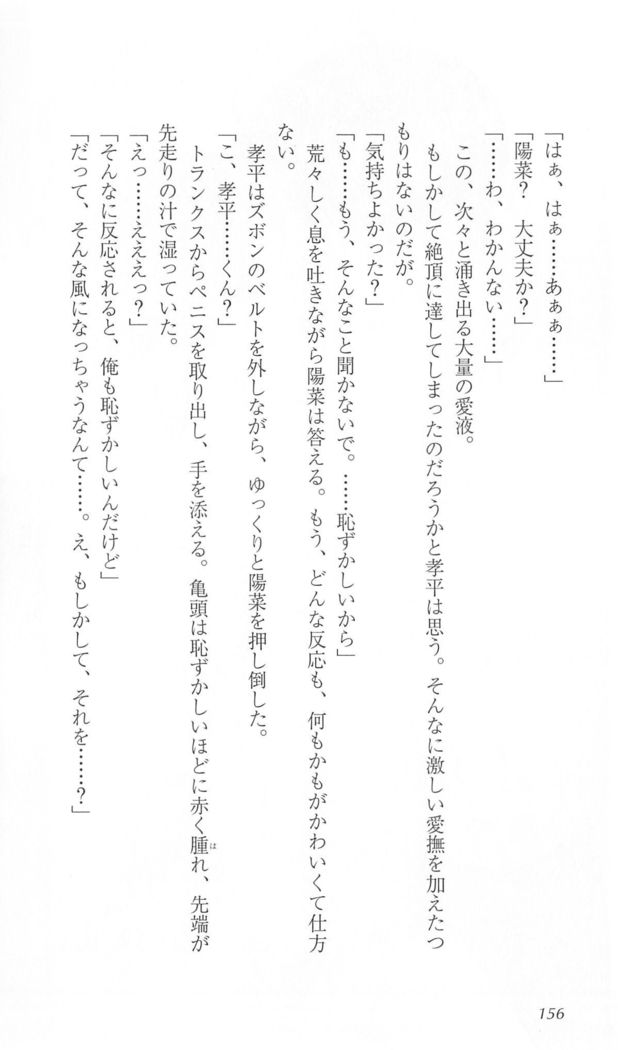 「はぁ、はぁ……あぁぁ……」
「陽菜？　大丈夫か？」
「……わ、わかんない……」
この、次々と涌き出る大量の愛液。
もしかして絶頂に達してしまったのだろうかと孝平は思う。そんなに激しい愛撫を加えたつ
もりはないのだが。
「気持ちよかった？」
「も……もう、そんなこと聞かないで。……恥ずかしいから」
荒々しく息を吐きながら陽菜は答える。もう、どんな反応も、何もかもがかわいくて仕方
ない。
孝平はズボンのベルトを外しながら、ゆっくりと陽菜を押し倒した。
「こ、孝平……くん？」
トランクスからペニスを取り出し、手を添える。亀頭は恥ずかしいほどに赤く腫れ、先端が
は
先走りの汁で湿っていた。
「えっ……えええっ？」
「そんなに反応されると、俺も恥ずかしいんだけど」
「だって、そんな風になっちゃうなんて……。え、もしかして、それを……？」
156